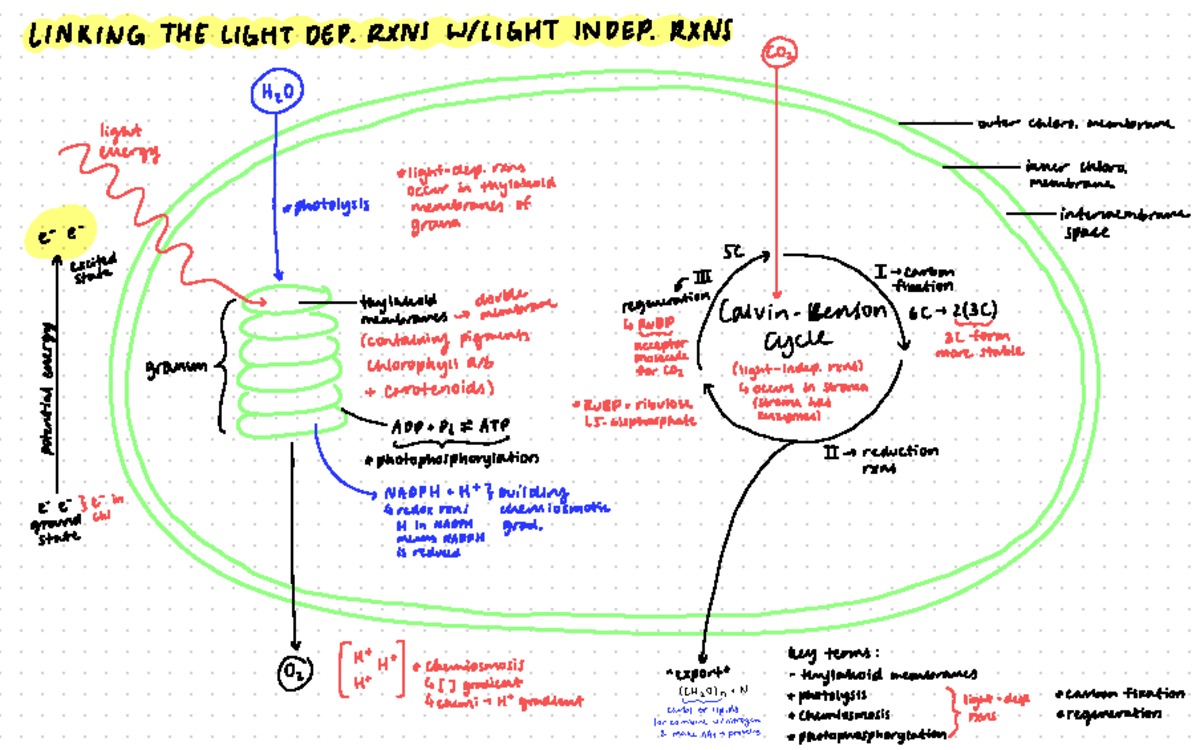 LINKING THE LIGHT DEP. RXNS W/LIGHT INDEP. RXNS
CO₂
H₂O
light
energy
outer chloro. membrane
inner chloro.
membrane
intermembrane
space
*light-dep. rxns
occur in thylakoid
membranes of
grana
*photolysis
e⁻ e⁻
excited
state
potential energy
e⁻ e⁻ } e⁻ in
chl
ground
state
granum
thylakoid
membranes → double
membrane
(containing pigments
chlorophyll a/b
+ carotenoids)
ADP + Pi ⇌ ATP
*photophosphorylation
NADPH + H⁺ } building
chemiosmotic
grad.
↳ redox rxn/
H in NADPH
means NADPH
is reduced
5C
I → carbon
fixation
6C → 2(3C)
3C form
more stable
III
regeneration
↳ RuBP
acceptor
molecule
for CO₂
*RuBP = ribulose
1,5-bisphosphate
Calvin-Benson
Cycle
(light-indep. rxns)
↳ occurs in stroma
(stroma has
enzymes)
II → reduction
rxns
O₂
[H⁺ H⁺ H⁺] * chemiosmosis
↳ [ ] gradient
↳ chemi → H⁺ gradient
*export*
(CH₂O)n + N
carbs or lipids
(or combine w/nitrogen
& make AAs → proteins
key terms:
- thylakoid membranes
*photolysis
*chemiosmosis
*photophosphorylation
} light-dep
rxns
*carbon fixation
*regeneration